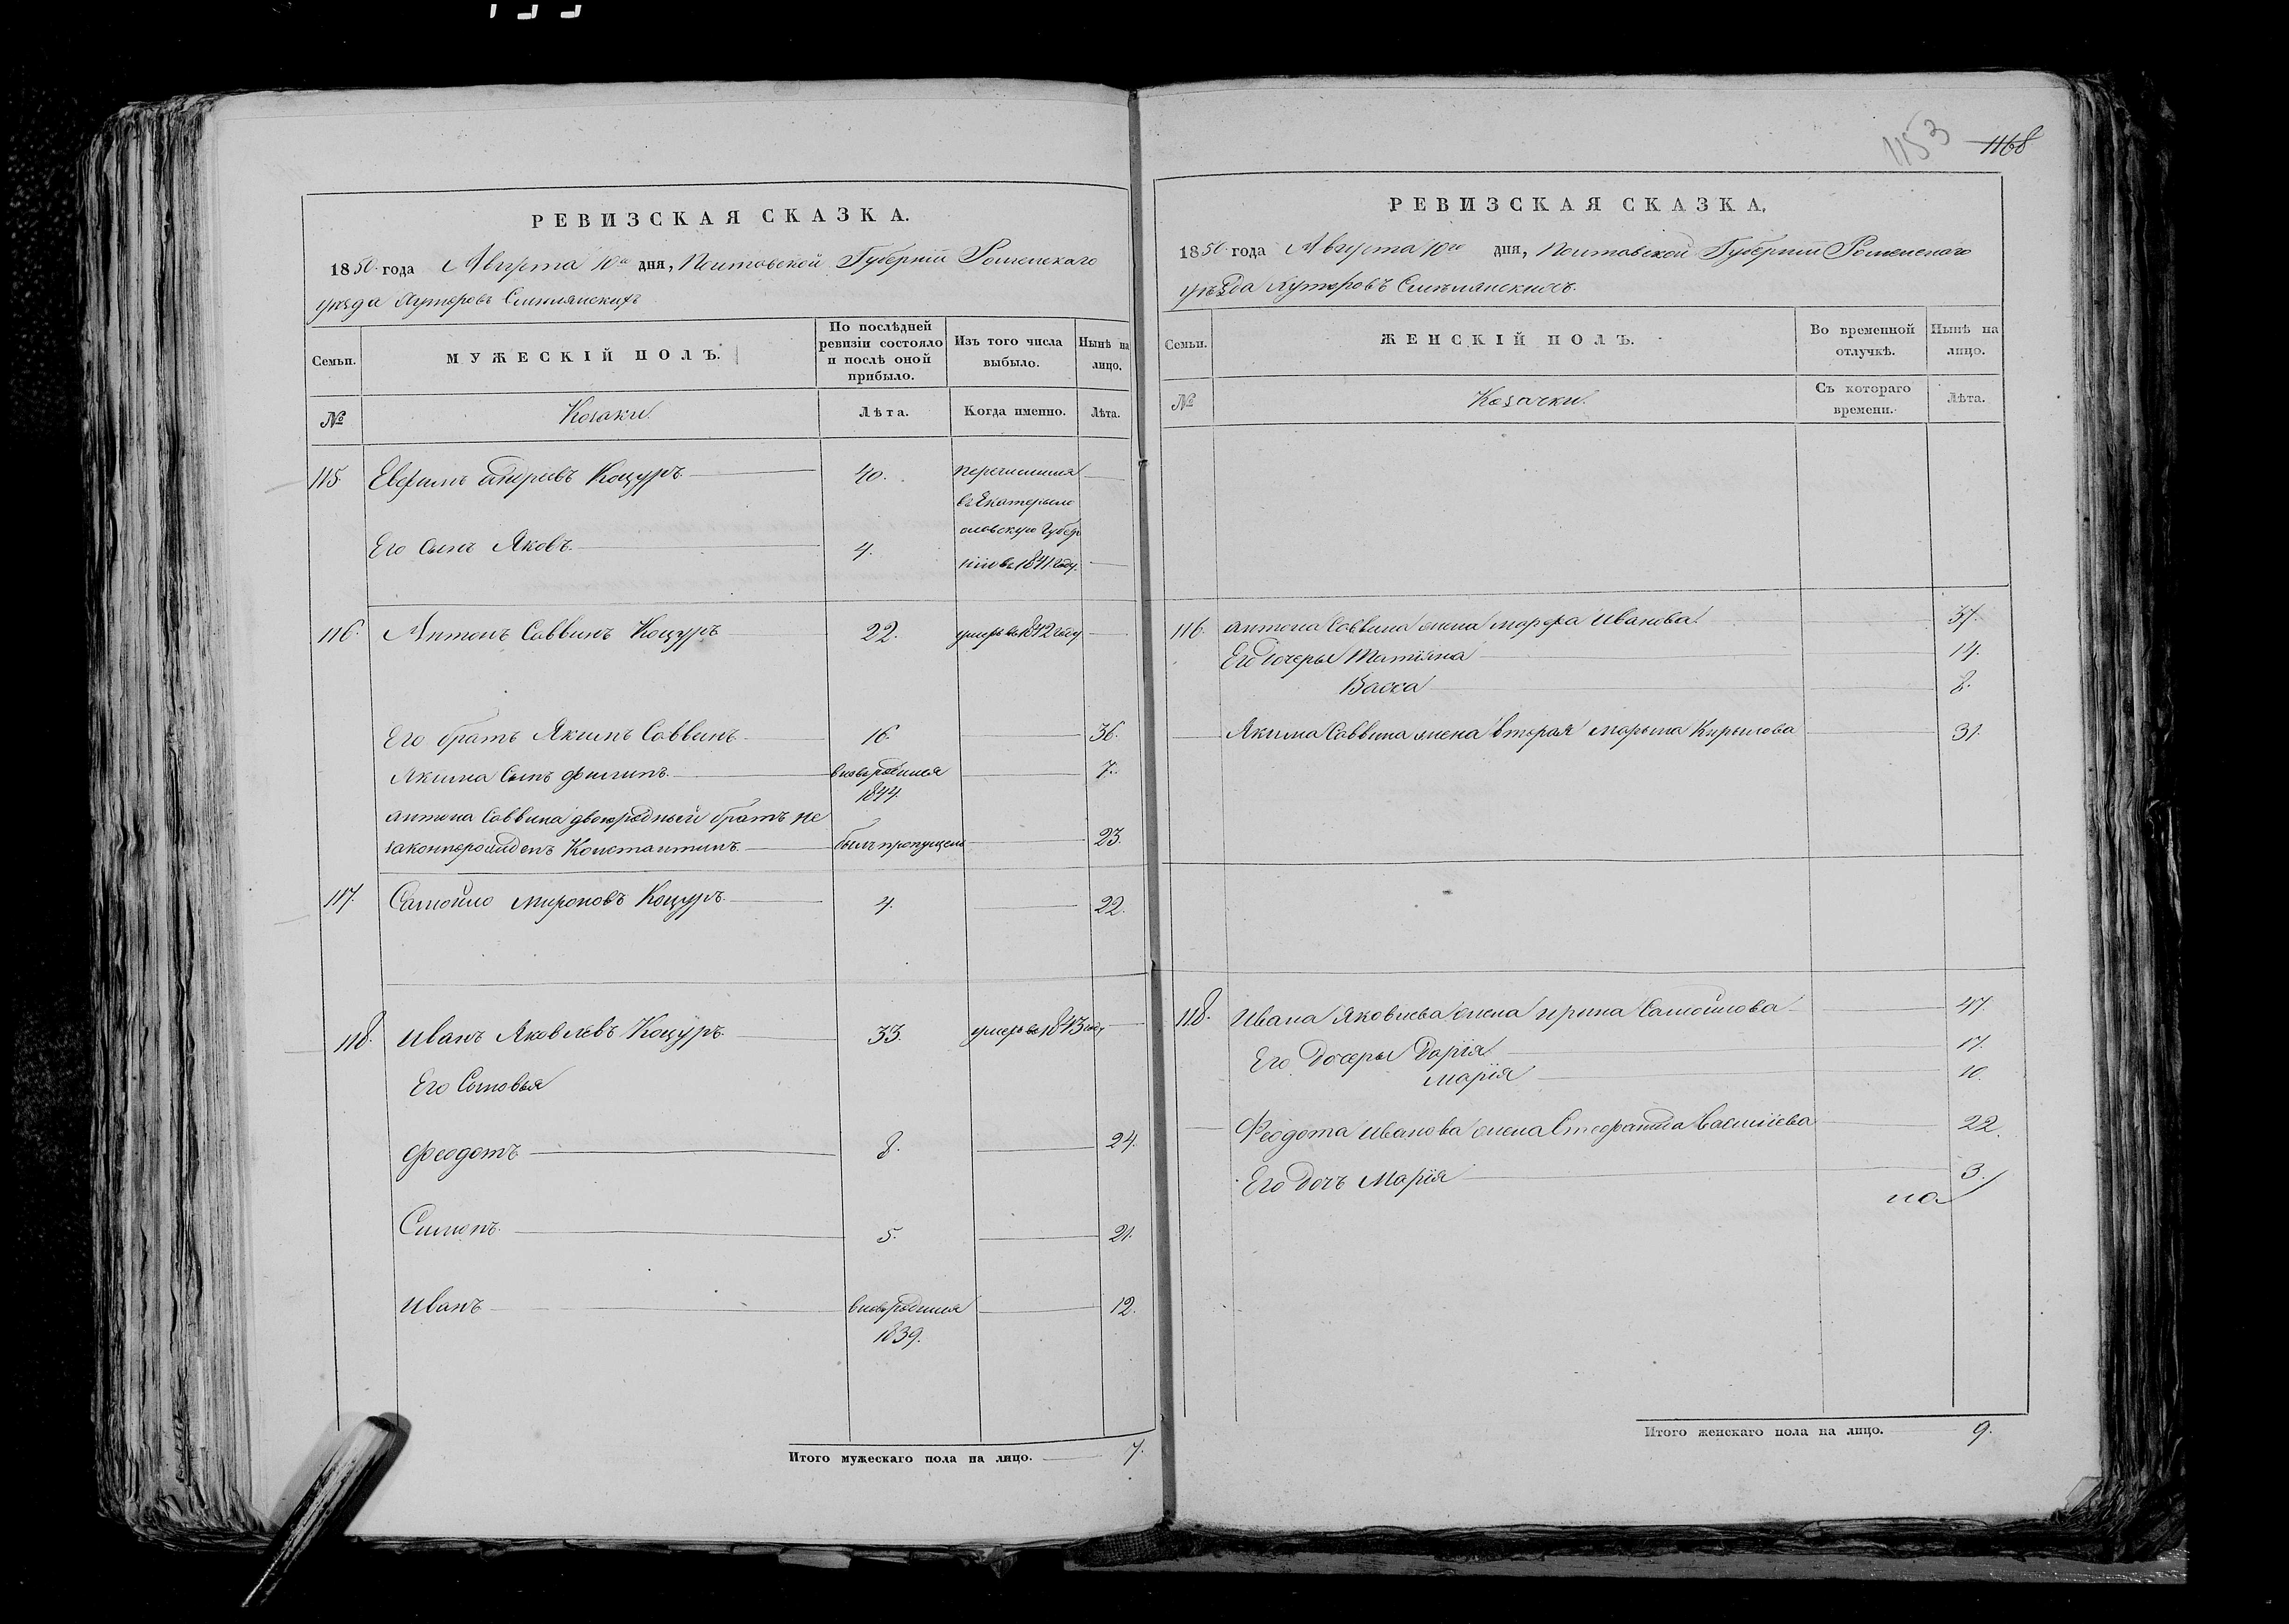 1153 1168
РЕВИЗСКАЯ СКАЗКА.
1850 года Августа 10го дня, Полтавской Губерніи Роменскаго
уѣзда Хуторовъ Смѣлянскихъ
Семьи.
МУЖЕСКІЙ ПОЛЪ.
По послѣдней ревизіи состояло и послѣ оной прибыло.
Изъ того числа выбыло.
Нынѣ на лицо.
№
Козаки.
Лѣта.
Когда именно.
Лѣта.
115 Евфимъ Андреевъ Коцуръ 40. перечислился
въ Екатерыно
славскую Губер
Его Сынъ Яковъ. 4. нію въ 1841 году.
116. Антонъ Саввинъ Коцуръ 22. умеръ въ 1842 году
Его братъ Якимъ Саввинъ 16 36.
Якима Сынъ Филипъ. вновьродился 7.
1844.
Антона Саввина двоюродный братъ не
законнорожденъ Константинъ. былъ пропущенъ 23.
117. Самойло Мироновъ Коцуръ 4. 22.
118. Иванъ Яковлевъ Коцуръ 33. умеръ въ 1843 году
Его Сыновья
Феодотъ 8. 24.
Симонъ. 5. 21.
Иванъ вновьродился 12.
1839.
Итого мужескаго пола на лицо. 7.
РЕВИЗСКАЯ СКАЗКА.
1850 года Августа 10го дня, Полтавской Губерніи Роменскаго
уѣзда Хуторовъ Смѣлянскихъ.
Семьи.
ЖЕНСКІЙ ПОЛЪ.
Во временной отлучкѣ.
Нынѣ на лицо.
№
Козачки.
Съ котораго времени.
Лѣта.
116. Антона Саввина жена Марфа Иванова 37.
Его дочеры Татіяна 14.
Васса 8.
Якима Саввина жена вторая Марына Кирылова 31.
118. Ивана Яковлева жена Ирина Самойлова 47.
Его Дочеры Дарія 17.
Марія 10.
Феодота Иванова жена Стефанида Васыліева 22.
Его Дочъ Марія 3.
Итого женскаго пола на лицо. 9.